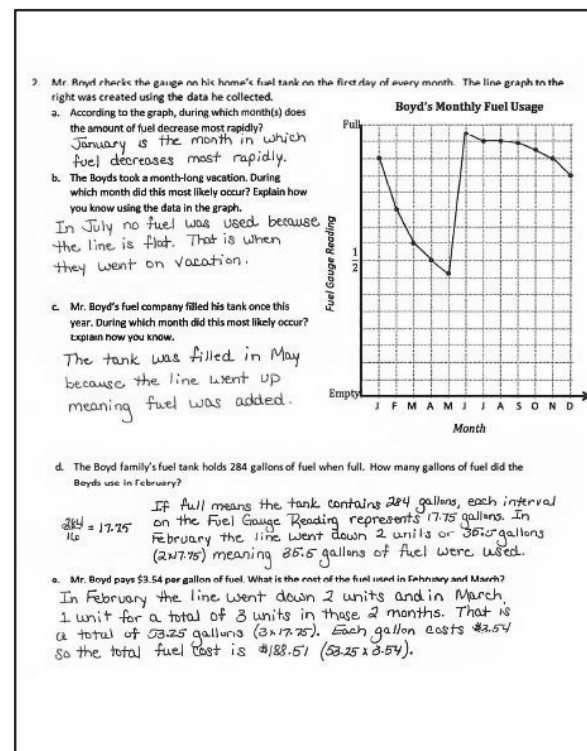 2. Mr. Boyd checks the gauge on his home's fuel tank on the first day of every month. The line graph to the
right was created using the data he collected.
a. According to the graph, during which month(s) does
the amount of fuel decrease most rapidly?
January is the month in which
fuel decreases most rapidly.
b. The Boyds took a month-long vacation. During
which month did this most likely occur? Explain how
you know using the data in the graph.
In July no fuel was used because
the line is flat. That is when
they went on vacation.
c. Mr. Boyd's fuel company filled his tank once this
year. During which month did this most likely occur?
Explain how you know.
The tank was filled in May
because the line went up
meaning fuel was added.
Boyd's Monthly Fuel Usage
Full
Fuel Gauge Reading
1/2
Empty
J F M A M J J A S O N D
Month
d. The Boyd family's fuel tank holds 284 gallons of fuel when full. How many gallons of fuel did the
Boyds use in February?
284/16 = 17.75
If full means the tank contains 284 gallons, each interval
on the Fuel Gauge Reading represents 17.75 gallons. In
February the line went down 2 units or 35.5 gallons
(2×17.75) meaning 35.5 gallons of fuel were used.
e. Mr. Boyd pays $3.54 per gallon of fuel. What is the cost of the fuel used in February and March?
In February the line went down 2 units and in March,
1 unit for a total of 3 units in those 2 months. That is
a total of 53.25 gallons (3×17.75). Each gallon costs $3.54
so the total fuel cost is $188.51 (53.25 x 3.54).